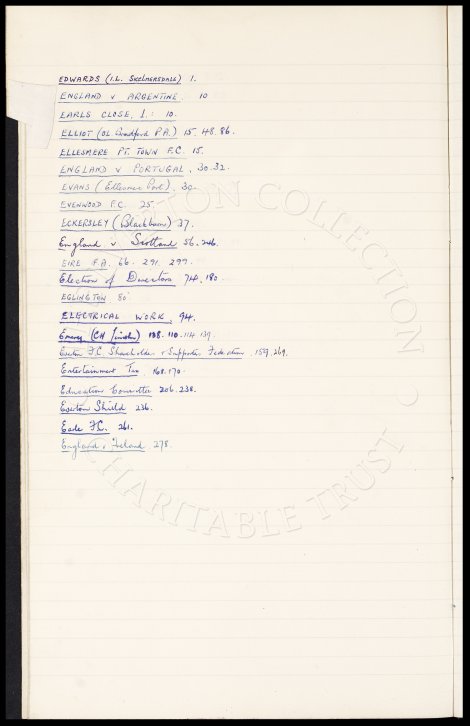 EDWARDS (I.L. SKELMERSDALE) 1.
ENGLAND v ARGENTINE. 10
EARLS CLOSE, 1: 10.
ELLIOT (OL Bradford P.A.) 15. 48. 86.
ELLESMERE PT. TOWN F.C. 15.
ENGLAND v PORTUGAL. 30.32.
EVANS (Ellesmere Port). 30.
EVENWOOD F.C. 25.
ECKERSLEY (Blackburn) 37.
England v Scotland 56. 246.
EIRE F.A. 66. 291. 299.
Election of Directors 74. 180.
EGLINGTON 80
ELECTRICAL WORK. 94.
Emery (CH Lincoln) 108. 110. 114. 139.
Everton F.C. Shareholders & Supporters Federation. 159. 269.
Entertainment Tax 168. 170.
Education Committee 206. 238.
Everton Shield 236.
Earle F.C. 261.
England v Ireland 278.
EVERTON COLLECTION
CHARITABLE TRUST